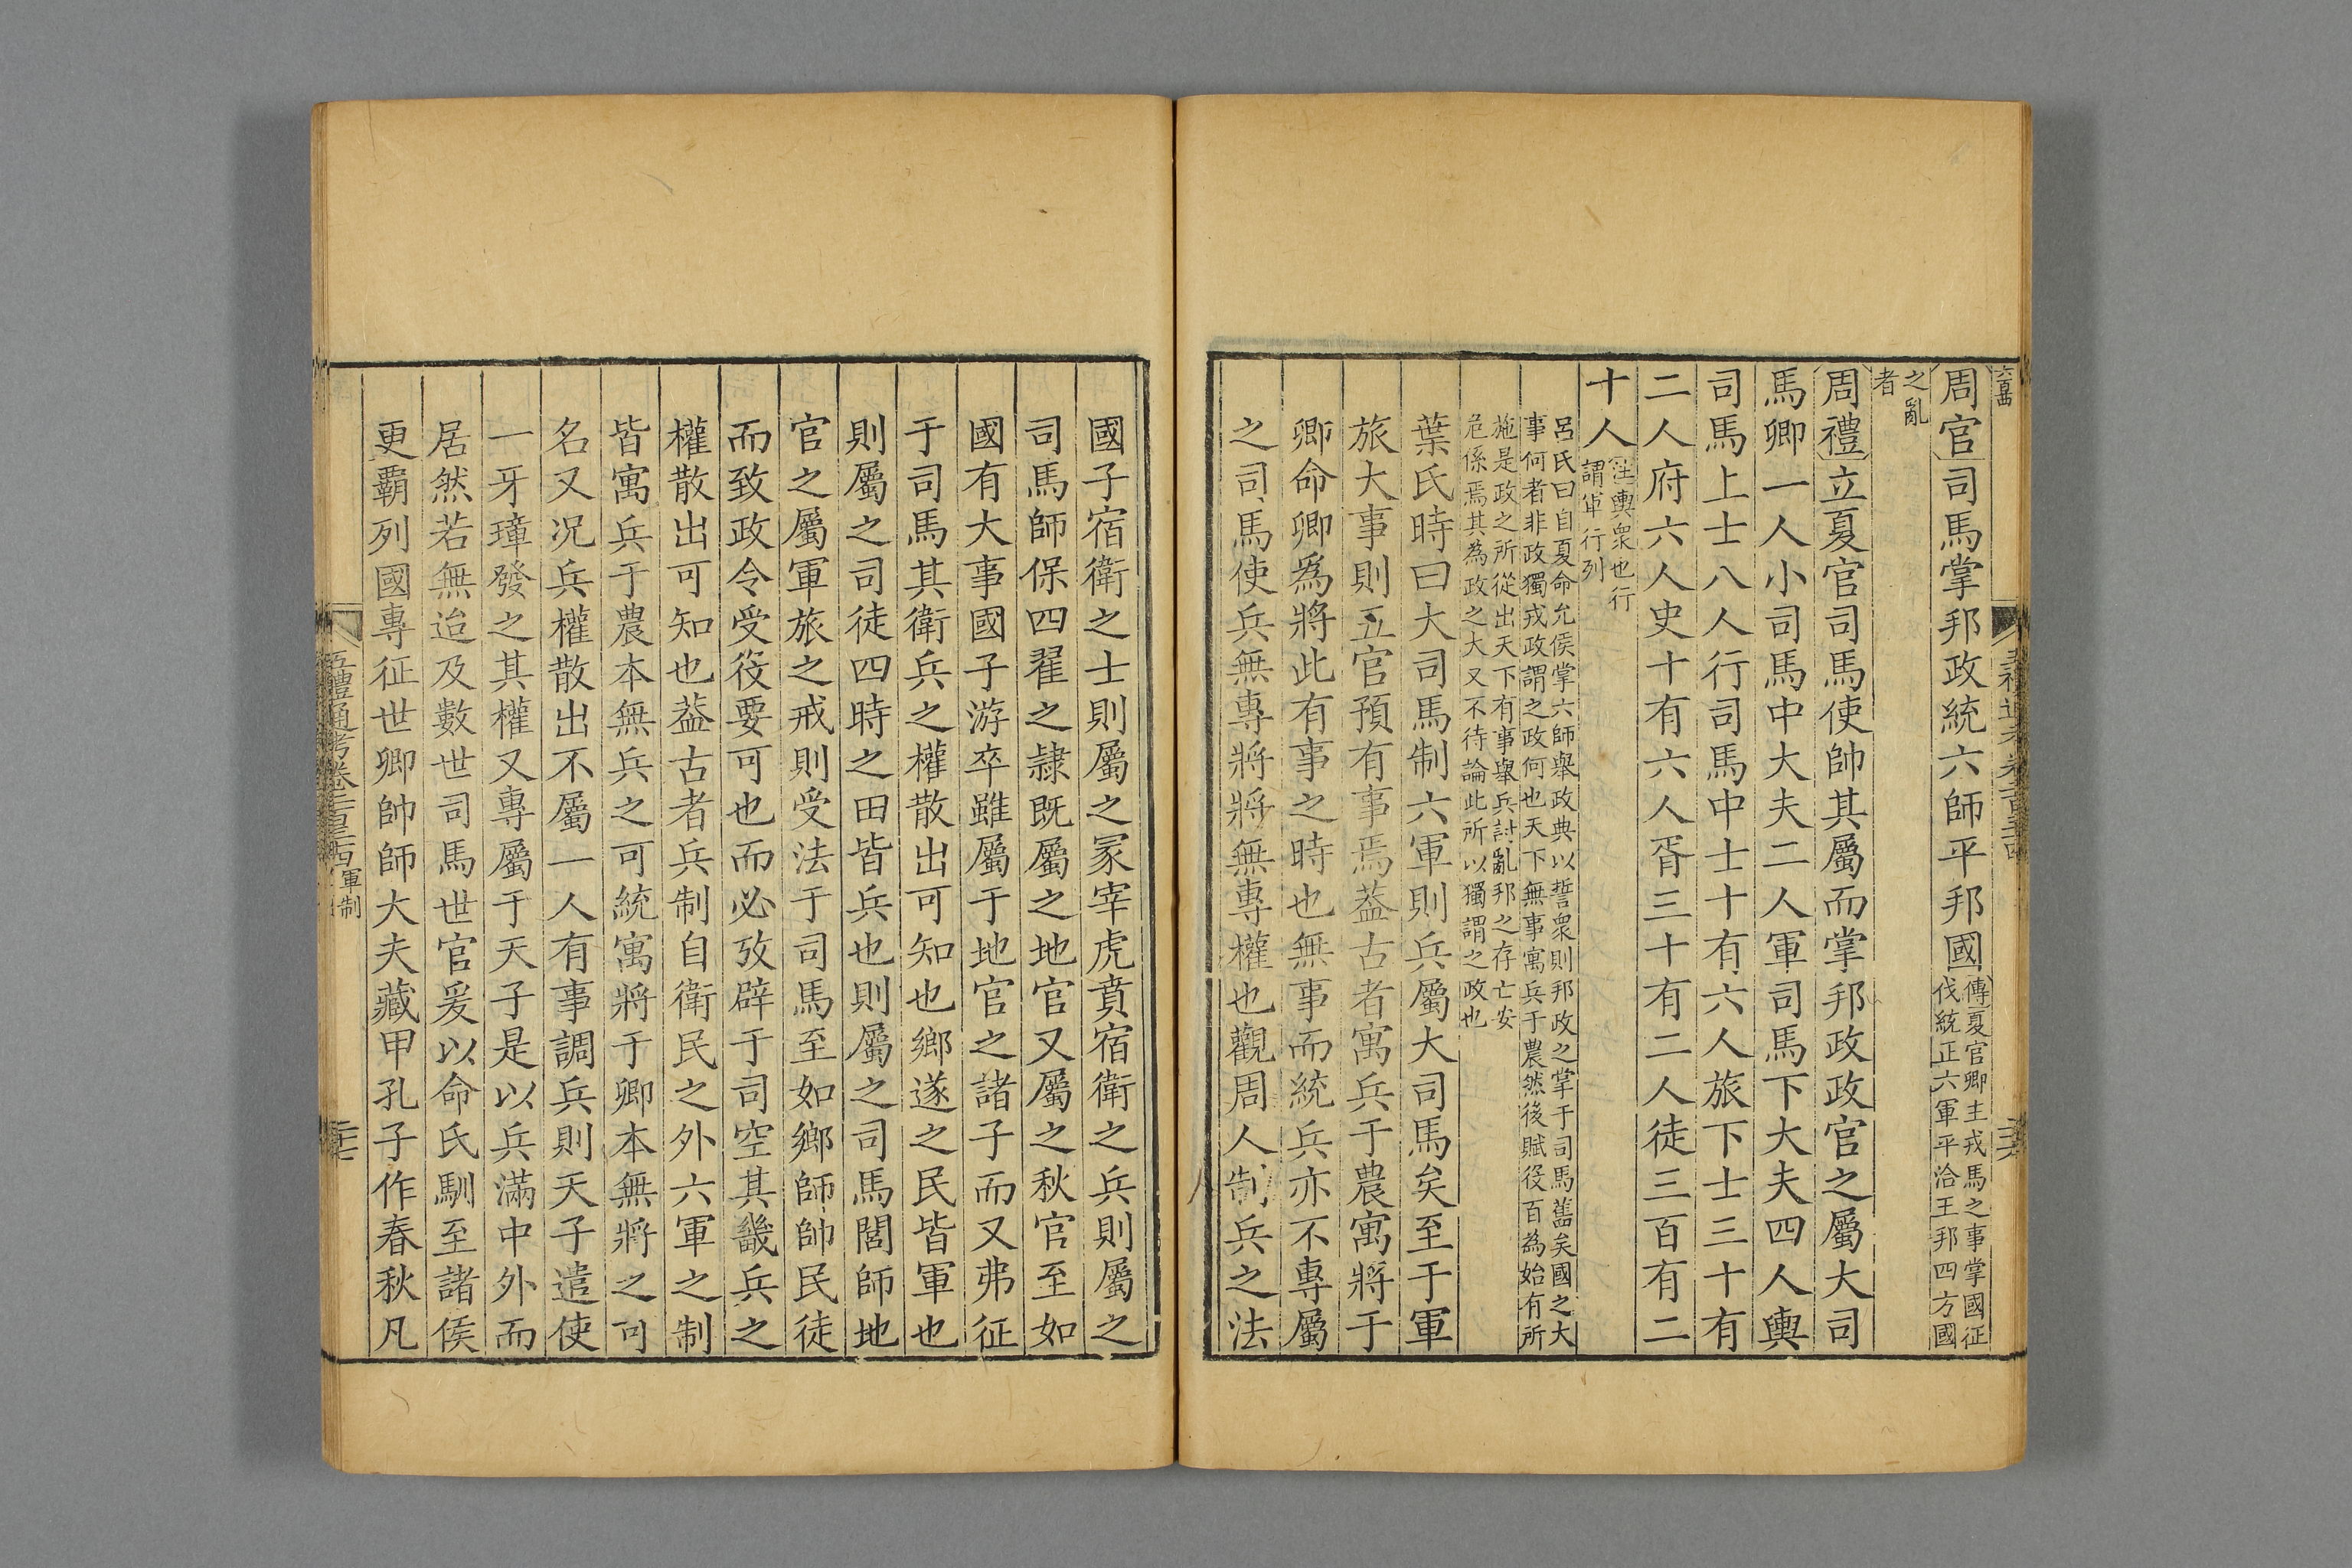 周官司馬掌邦政統六師平邦國傳夏官卿主戎馬之事掌國征
伐統正六軍平治王邦四方國
之亂
者
周禮立夏官司馬使帥其屬而掌邦政政官之屬大司
馬卿一人小司馬中大夫二人軍司馬下大夫四人輿
司馬上士八人行司馬中士十有六人旅下士三十有
二人府六人史十有六人胥三十有二人徒三百有二
十人注輿衆也行
謂軍行列
呂氏曰自夏命允侯掌六師舉政典以誓衆則邦政之掌于司馬舊矣國之大
事何者非政獨戎政謂之政何也天下無事寓兵于農然後賦役百為始有所
施是政之所從出天下有事舉兵討亂邦之存亡安
危係焉其為政之大又不待論此所以獨謂之政也
葉氏時曰大司馬制六軍則兵屬大司馬矣至于軍
旅大事則五官預有事焉葢古者寓兵于農寓將于
卿命卿爲將此有事之時也無事而統兵亦不專屬
之司馬使兵無專將將無專權也觀周人制兵之法
國子宿衛之士則屬之冢宰虎賁宿衛之兵則屬之
司馬師保四翟之隷既屬之地官又屬之秋官至如
國有大事國子游卒雖屬于地官之諸子而又弗征
于司馬其衛兵之權散出可知也鄉遂之民皆軍也
則屬之司徒四時之田皆兵也則屬之司馬閭師地
官之屬軍旅之戒則受法于司馬至如鄉師帥民徒
而致政令受役要可也而必攷辟于司空其畿兵之
權散出可知也葢古者兵制自衛民之外六軍之制
皆寓兵于農本無兵之可統寓將于卿本無將之可
名又况兵權散出不屬一人有事調兵則天子遣使
一牙璋發之其權又專屬于天子是以兵滿中外而
居然若無迨及數世司馬世官爰以命氏馴至諸侯
更覇列國專征世卿帥師大夫藏甲孔子作春秋凡
五禮通考卷二百三十四 軍制